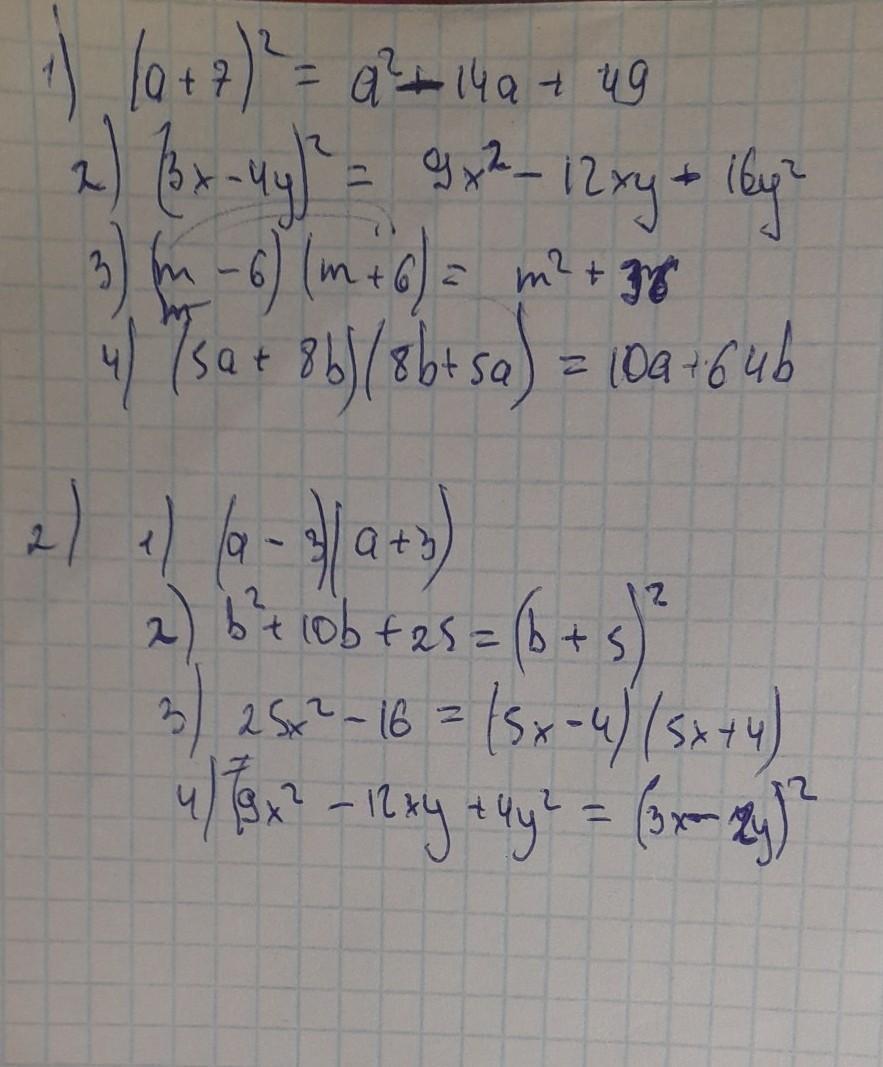 1) (a + 7)² = a² + 14a + 49
2) (3x - 4y)² = 9x² - 12xy + 16y²
3) (m - 6)(m + 6) = m² + 36
m
4) (5a + 8b)(8b + 5a) = 10a + 64b
2) 1) (a - 3)(a + 3)
2) b² + 10b + 25 = (b + 5)²
3) 25x² - 16 = (5x - 4)(5x + 4)
4) 9x² - 12xy + 4y² = (3x - 2y)²